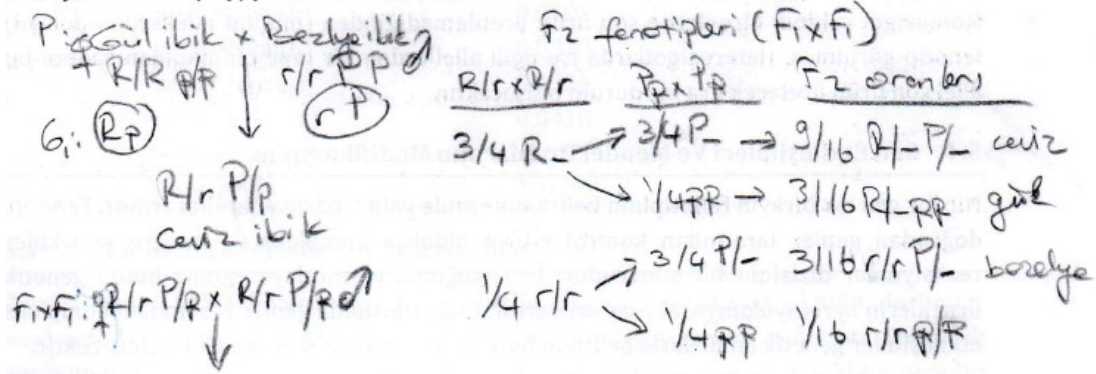 P: ♀ Gül ibik x Bezelye ibik ♂
R/R pp r/r P P
G: Rp rP
R/r P/p
Ceviz ibik
F1xF1: ♀ R/r P/p x R/r P/p ♂
F2 fenotipleri (F1xF1)
R/r x R/r Pp x Pp F2 oranları
3/4 R- → 3/4 P- → 9/16 R/- P/- ceviz
→ 1/4 PP → 3/16 R/- pp gül
1/4 r/r → 3/4 P/- 3/16 r/r P/- bezelye
→ 1/4 PP 1/16 r/r p/p